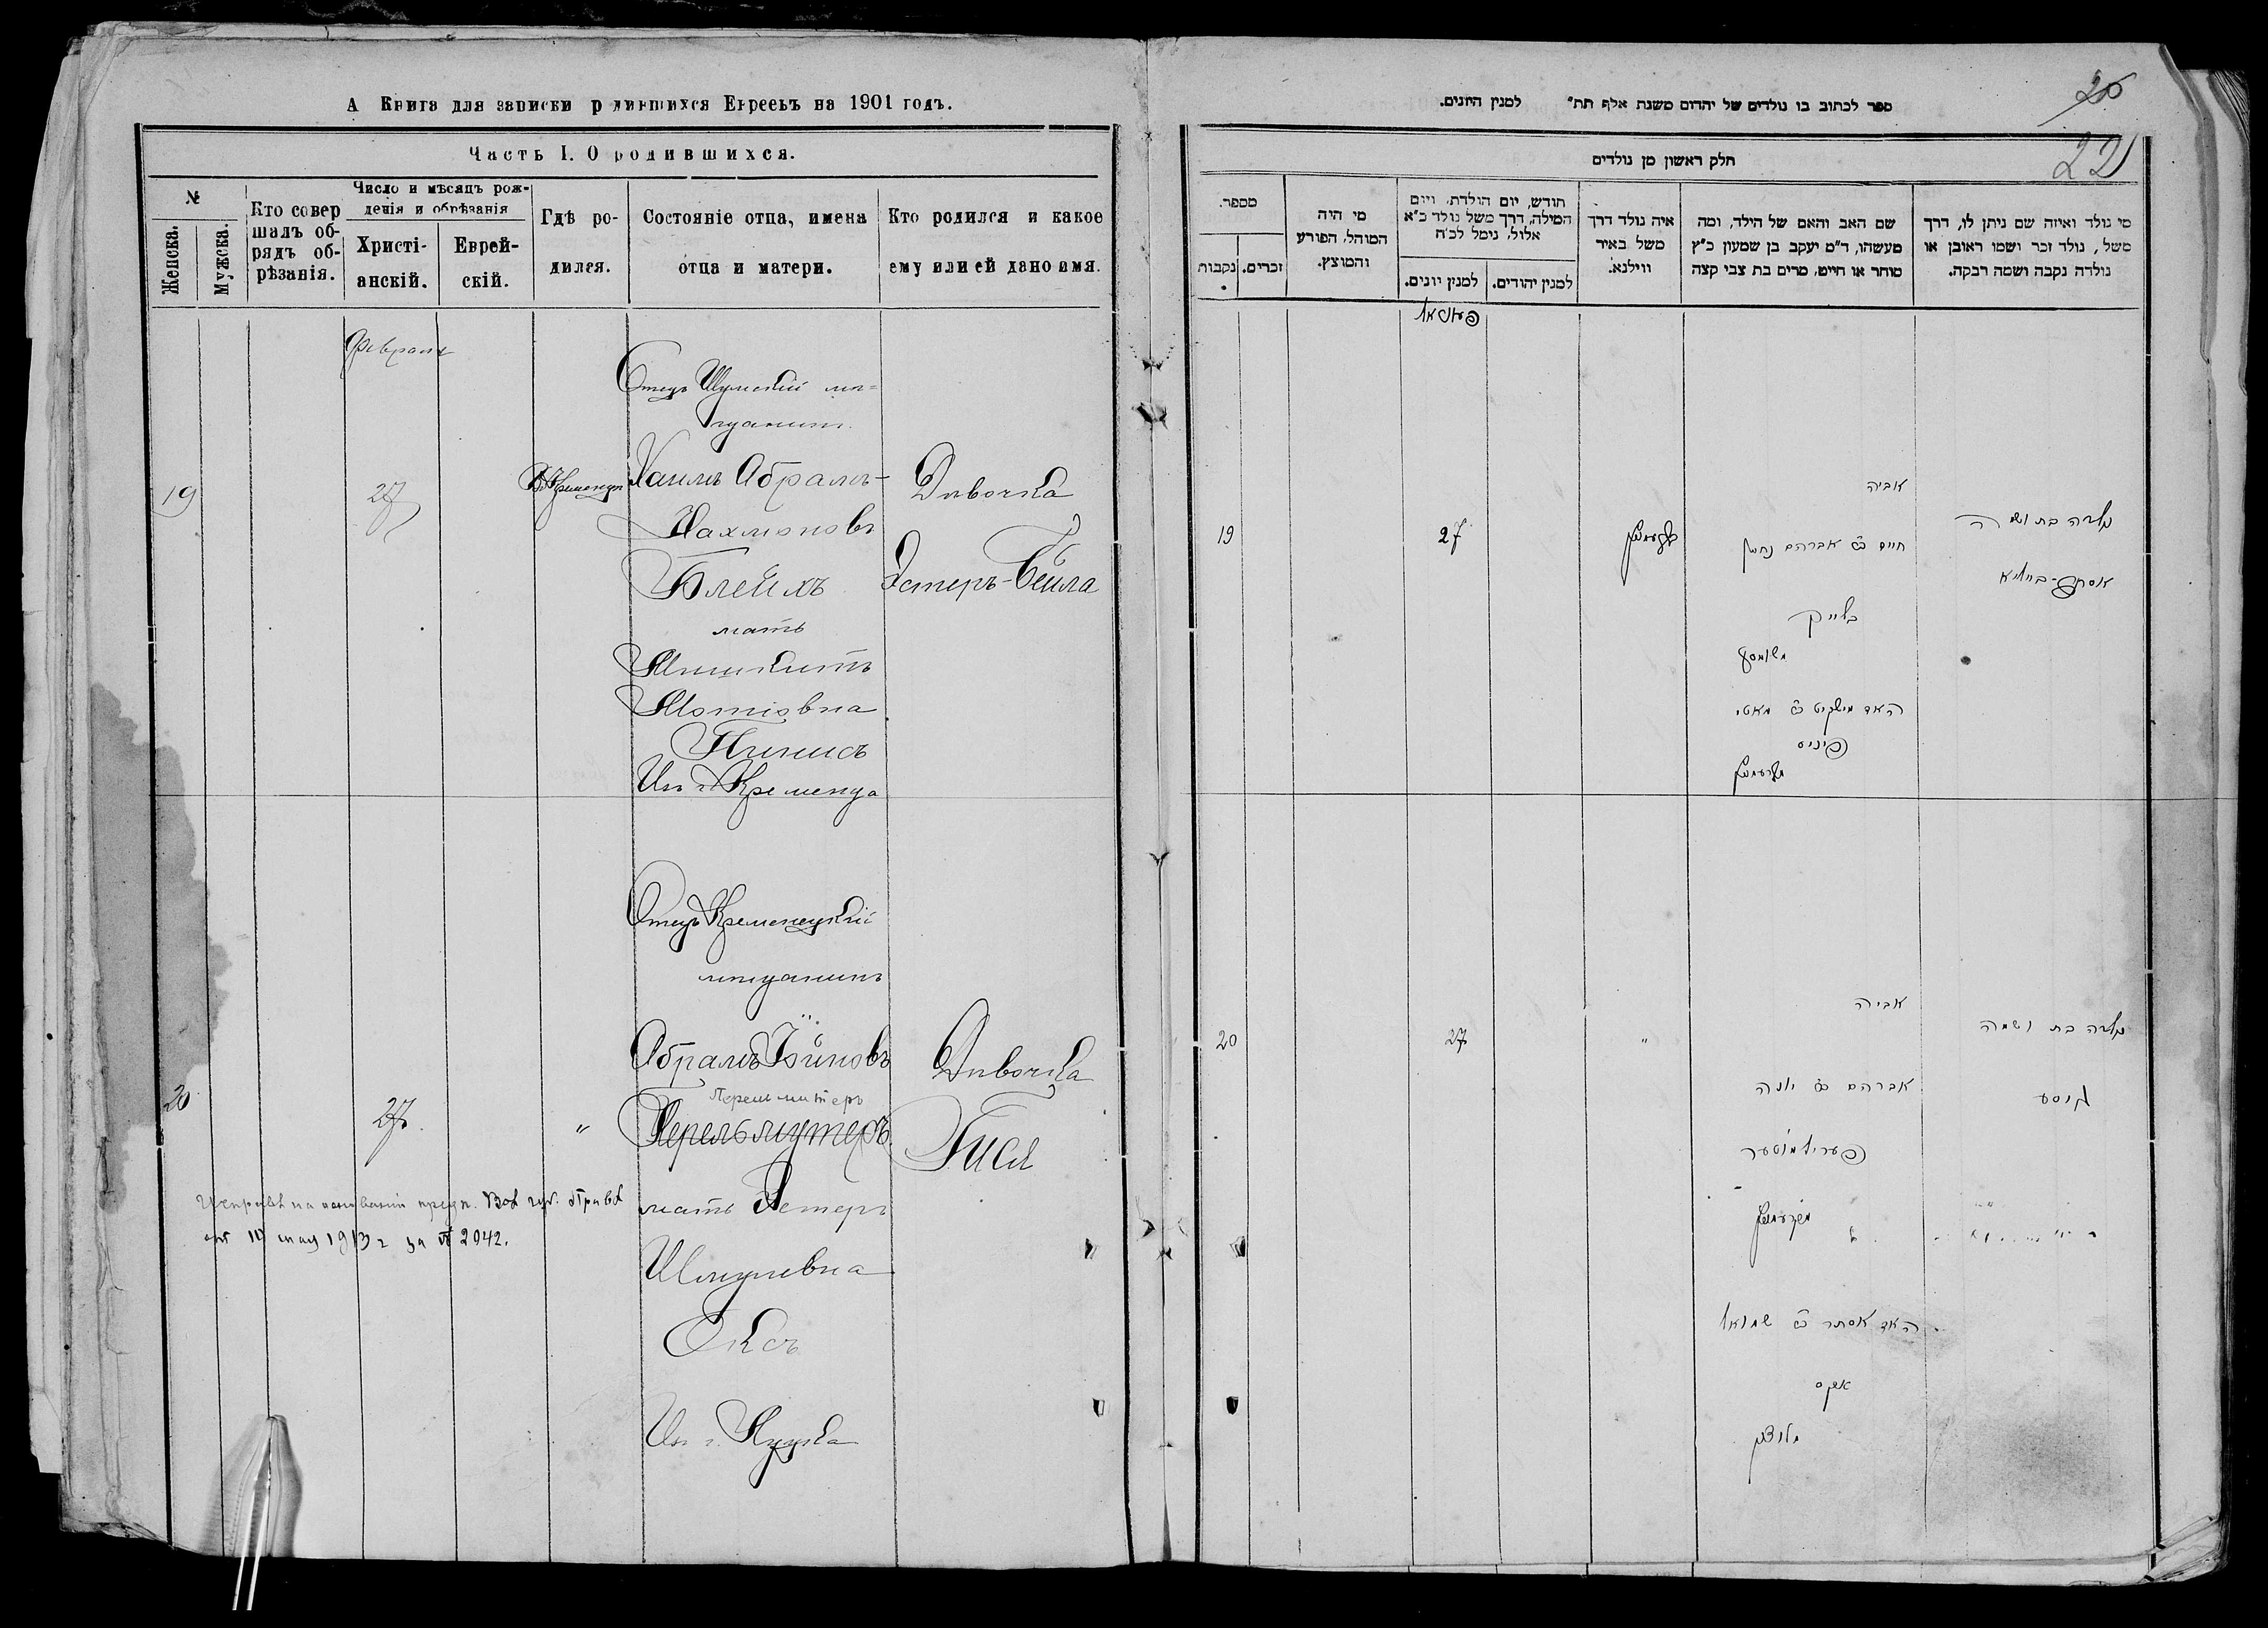 А Книга для записки родившихся Евреевъ на 1901 годъ.
Часть I. О родившихся.
№
Женска.
Мужска.
Кто совер
шалъ об-
рядъ об-
рѣзанія.
Число и мѣсяцъ рож-
денія и обрѣзанія
Христі-
анскій.
Еврей-
скій.
Гдѣ ро-
дился.
Состояніе отца, имена
отца и матери.
Кто родился и какое
ему или ей дано имя.
Февраля
19
27
Въ Кременцѣ
Отецъ Шумскій мѣ-
щанинъ
Хаимъ Абрамъ-
Нахмоновъ
Блейхъ
мать
Мотіовна
Пинисъ
Из г. Кременца
Дѣвочка
Эстеръ-Бейла
20
27
"
Отецъ Кременецкій
мѣщанинъ
Абрамъ Іойновъ
Перельмитеръ
Перельмутеръ
мать Эстеръ
Шмулевна
Оксъ
Из г. Луцка
Дѣвочка
Гися
от 10 мая 1913 г за № 2942.
26
22
ספר לכתוב בו נולדים של יהדום משנת אלף תת״ למנין היונים.
חלק ראשון מן נולדים
מספר.
נקבות
זכרים.
מי היה
המוהל, הפורע
והמוצץ.
חודש, יום הולדת, ויום
המילה, דרך משל נולד כ״א
אלול, נימל לכ״ח
למנין יונים.
למנין יהודים.
איה נולד דרך
משל באיר
ווילנא.
שם האב והאם של הילד, ומה
מעשהו, ד״מ יעקב בן שמעון כ״ץ
סוחר או חייט, מרים בת צבי קצה
מי נולד ואיזה שם ניתן לו, דרך
משל, נולד זכר ושמו ראובן או
נולדה נקבה ושמה רבקה.
19
27
אביה
חיים ב״ר אברהם נחמן
בלייך
משומסק
פיניס
נולדה בת ושמה
אסתר-ביילא
20
27
"
אביה
אברהם ב״ר יונה
פערילמוטער
האם אסתר ב״ר שמואל
אקס
מלוצק
נולדה בת ושמה
גיסע